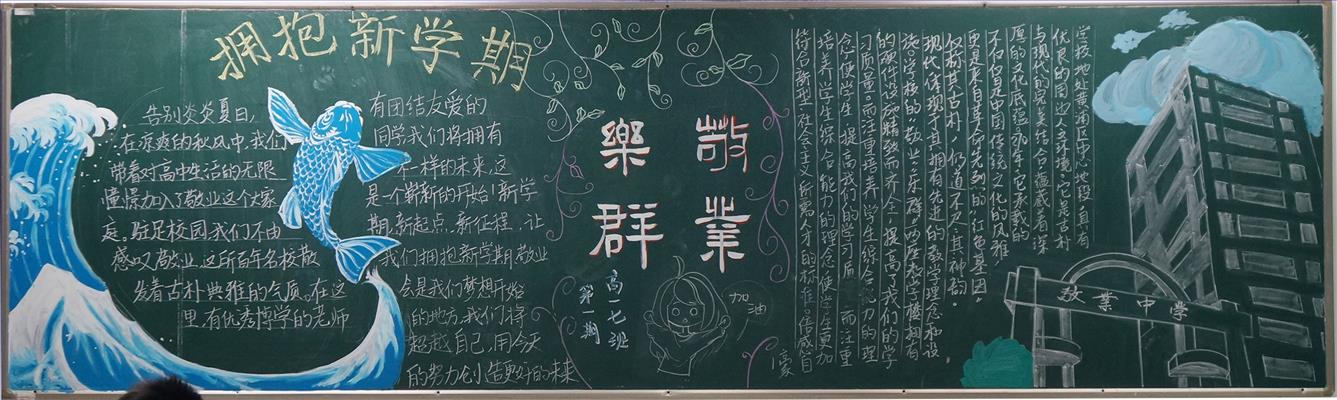 拥抱新学期
告别炎炎夏日,
在凉爽的秋风中,我们
带着对高中生活的无限
憧憬加入了敬业这个大家
庭。驻足校园我们不由
感叹敬业,这所百年名校散
发着古朴典雅的气质。在这
里,有优秀博学的老师
有团结友爱的
同学我们将拥有
不一样的未来,这
是一个崭新的开始!新学
期,新起点,新征程,让
我们拥抱新学期,敬业
会是我们梦想开始
的地方,我们将
超越自己,用今天
的努力创造更好的未来
敬業
樂群
高一七班
第一期
加油
学校地处黄浦区中心地段,具有
优良的周边人文环境。它是古朴
与现代的完美结合,蕴藏着深
厚的文化底蕴,它承载的
不仅仅是中国传统文化的风雅
更是来自革命先列的"红色基因"。
仅称其古朴,仍道不尽其神韵
现代体现于其拥有先进的教学理念和设
施学校的"敬业""乐群"两座教学楼拥有
的硬件设施精致而齐全,提高了我们的学
习质量。而注重培养学生综合能力的理
念使学生提高我们的学习质 而注重
培养学生综合能力的理念使学生更加
符合新型社会主义所需人才的标准。倍感自
豪
敬業中学